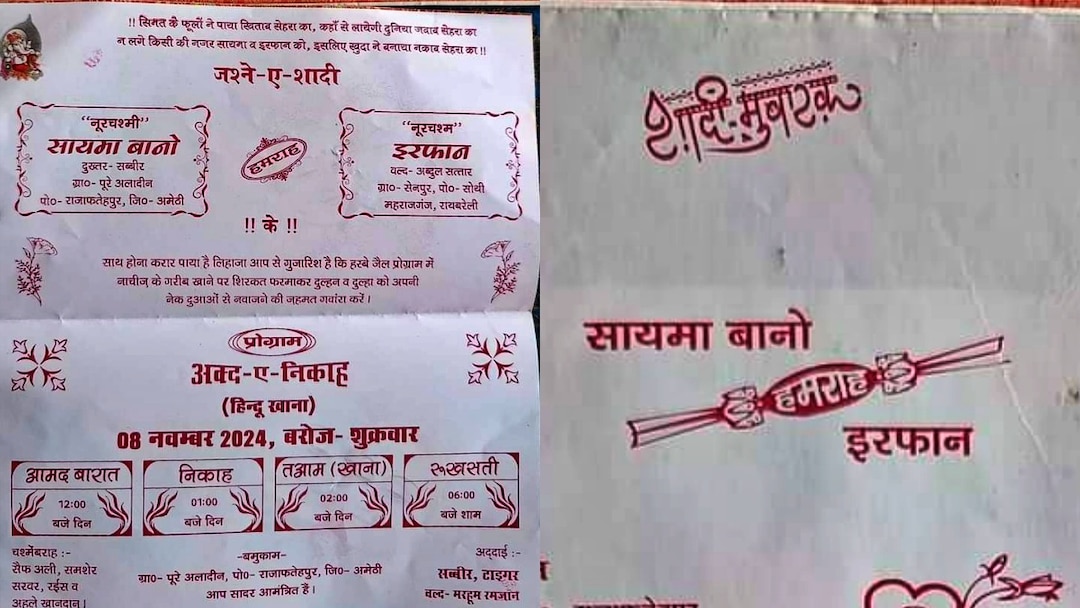 !! सिमत के फूलों ने पाया खिताब सेहरा का, कहाँ से लायेगी दुनिया जबाब सेहरा का
न लगे किसी की नजर सायमा व इरफान की, इसलिए खुदा ने बनाया नक़ाब सेहरा का !!
जश्ने-ए-शादी
“नूरचश्मी”
सायमा बानो
दुख्तर- सब्बीर
ग्रा०- पूरे अलादीन
पो०- राजाफतेहपुर, जि०- अमेठी
हमराह
“नूरचश्म”
इरफान
वल्द- अब्दुल सत्तार
ग्रा०- सेनपुर, पो०- सोथी
महराजगंज, रायबरेली
!! के !!
साथ होना करार पाया है लिहाना आप से गुजारिश है कि हस्बे जैल प्रोग्राम में
नाचीज के गरीब खाने पर शिरकत फरमाकर दुल्हन व दुल्हा को अपनी
नेक दुआओं से नवाजने की जहमत गवांरा करें।
प्रोग्राम
अक्द-ए-निकाह
(हिन्दू खाना)
08 नवम्बर 2024, बरोज- शुक्रवार
आमद बारात
12:00
बजे दिन
निकाह
01:00
बजे दिन
तआम (खाना)
02:00
बजे दिन
रूखसती
06:00
बजे शाम
चश्मेंबराह :-
सैफ अली, समशेर
सरवर, रईस व
अहले खानदान।
-बमुकाम-
ग्रा०- पूरे अलादीन, पो०- राजाफतेहपुर, जि०- अमेठी
आप सादर आमंत्रित हैं।
अद्दाई :-
सब्बीर, टाइगर
वल्द- मरहूम रमजान
शादी-मुबारक
सायमा बानो
हमराह
इरफान